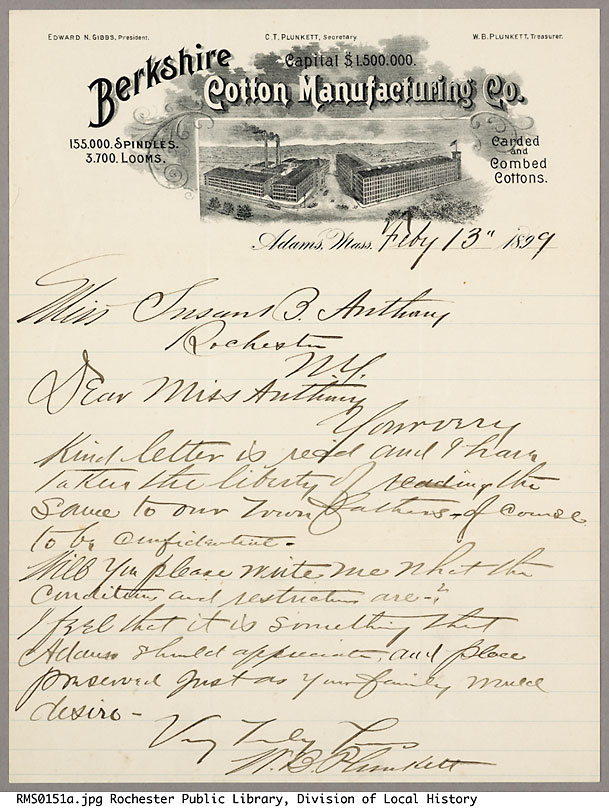 EDWARD N. GIBBS, President. C. T. PLUNKETT, Secretary. W. B. PLUNKETT, Treasurer.
Capital $1,500,000.
Berkshire
Cotton Manufacturing Co.
155,000. SPINDLES.
3,700. LOOMS.
Carded
and
Combed
Cottons.
Adams, Mass. Feby 13" 1899
Miss Susan B. Anthony
Rochester
N.Y.
Dear Miss Anthony
Your very
Kind letter is rec'd and I have
taken the liberty of reading the
same to our Town Fathers, of course
to be confidential.
Will you please write me what the
conditions and restrictions are-?
I feel that it is something that
Adams should appreciate, and place
preserved just as your family would
desire-
Very Truly Yours
W. B. Plunkett
RMS0151a.jpg Rochester Public Library, Division of Local History